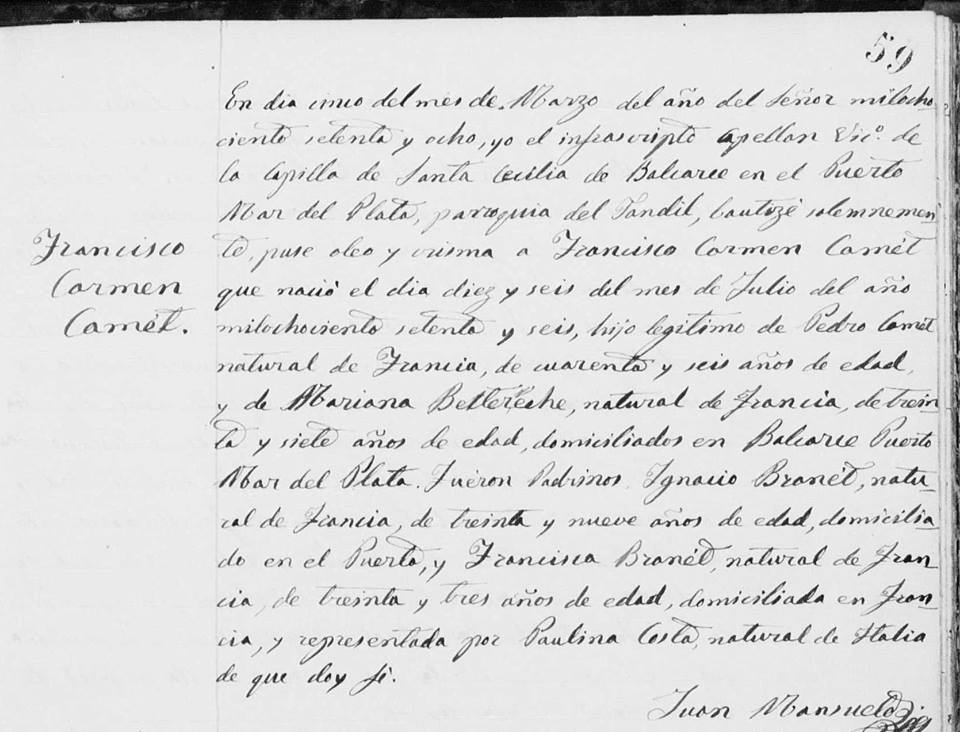 59
En dia cinco del mes de Marzo del año del Señor milocho-
ciento setenta y ocho, yo el infrascripto Capellan Vic.º de
la Capilla de Santa Cecilia de Balcarce en el Puerto
Mar del Plata, parroquia del Tandil, bautizé solemnemen-
te, puse oleo y crisma a Francisco Carmen Camét
que nació el dia diez y seis del mes de Julio del año
milochociento setenta y seis, hijo legitimo de Pedro Camet
natural de Francia, de cuarenta y seis años de edad,
y de Mariana Betereche, natural de Francia, de trein
ta y siete años de edad, domiciliados en Balcarce Puerto
Mar del Plata. Fuéron Padrinos Ignacio Branét, natu-
ral de Francia, de treinta y nueve años de edad, domicilia
do en el Puerto, y Francisca Branét, natural de Fran-
cia, de treinta y tres años de edad, domiciliada en Fran-
cia, y representada por Paulina Costa, natural de Italia
de que doy fé.
Juan Mansueto
Francisco
Carmen
Camét.